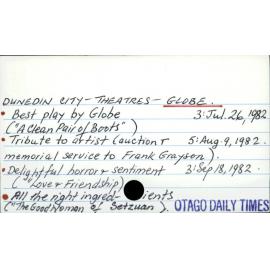 DUNEDIN CITY - THEATRES - GLOBE.
• Best play by Globe 3: Jul. 26, 1982
("A Clean Pair of Boots")
• Tribute to artist (auction + 5: Aug. 9, 1982.
memorial service to Frank Grayson).
• Delightful horror & sentiment 3: Sep 18, 1982.
("Love & Friendship)
• All the right ingredients
("The Good Woman of Setzuan).
OTAGO DAILY TIMES